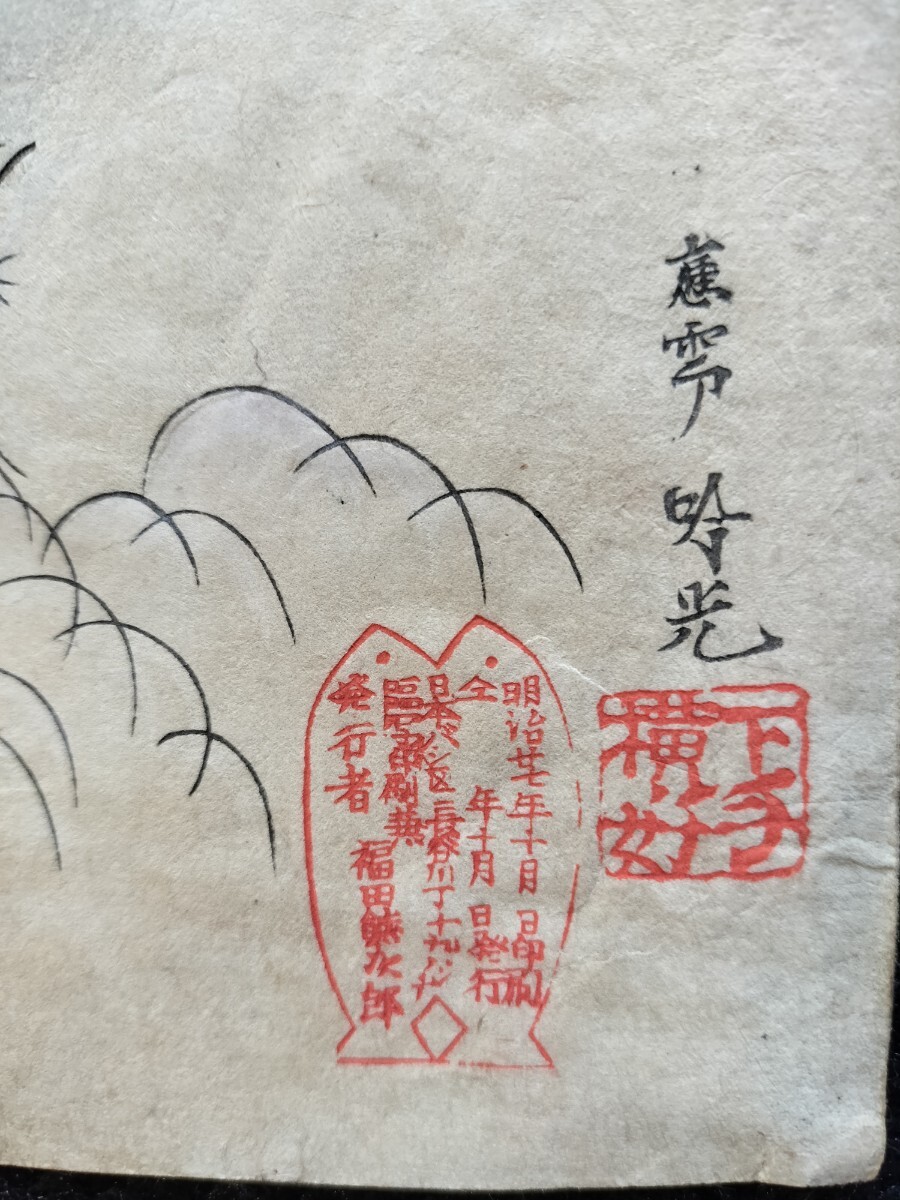 應需 吟光
明治廿七年十月 日印刷
仝 年十月 日発行
日本ハシ区長谷川丁十九バンチ
臨写印刷兼
発行者 福田熊次郎